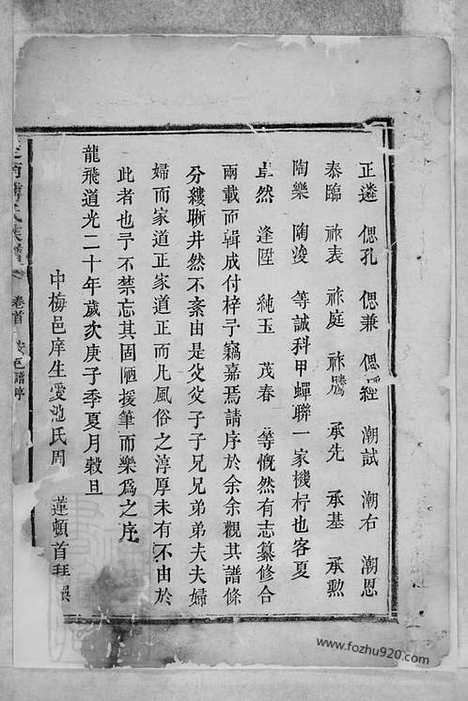 正遴 偲孔 偲兼 偲經 潮試 潮右 潮恩
泰臨 祚表 祚庭 祚騰 承先 承基 承勲
陶樂 陶浚 等誠科甲蟬聯一家機杼也客夏
卓然 逢陞 純玉 茂春 等慨然有志纂修合
兩載而輯成付梓予竊嘉焉請序於余余觀其譜條
分縷晰井然不紊由是父父子子兄兄弟弟夫夫婦
婦而家道正而凡風俗之淳厚未有不由於
此者也予不禁忘其固陋援筆而樂為之序
龍飛道光二十年歲次庚子季夏月穀旦
中梅邑庠生愛池氏周 蓮頓首拜
氏族譜 卷首 譜序
www.fozhu920.com